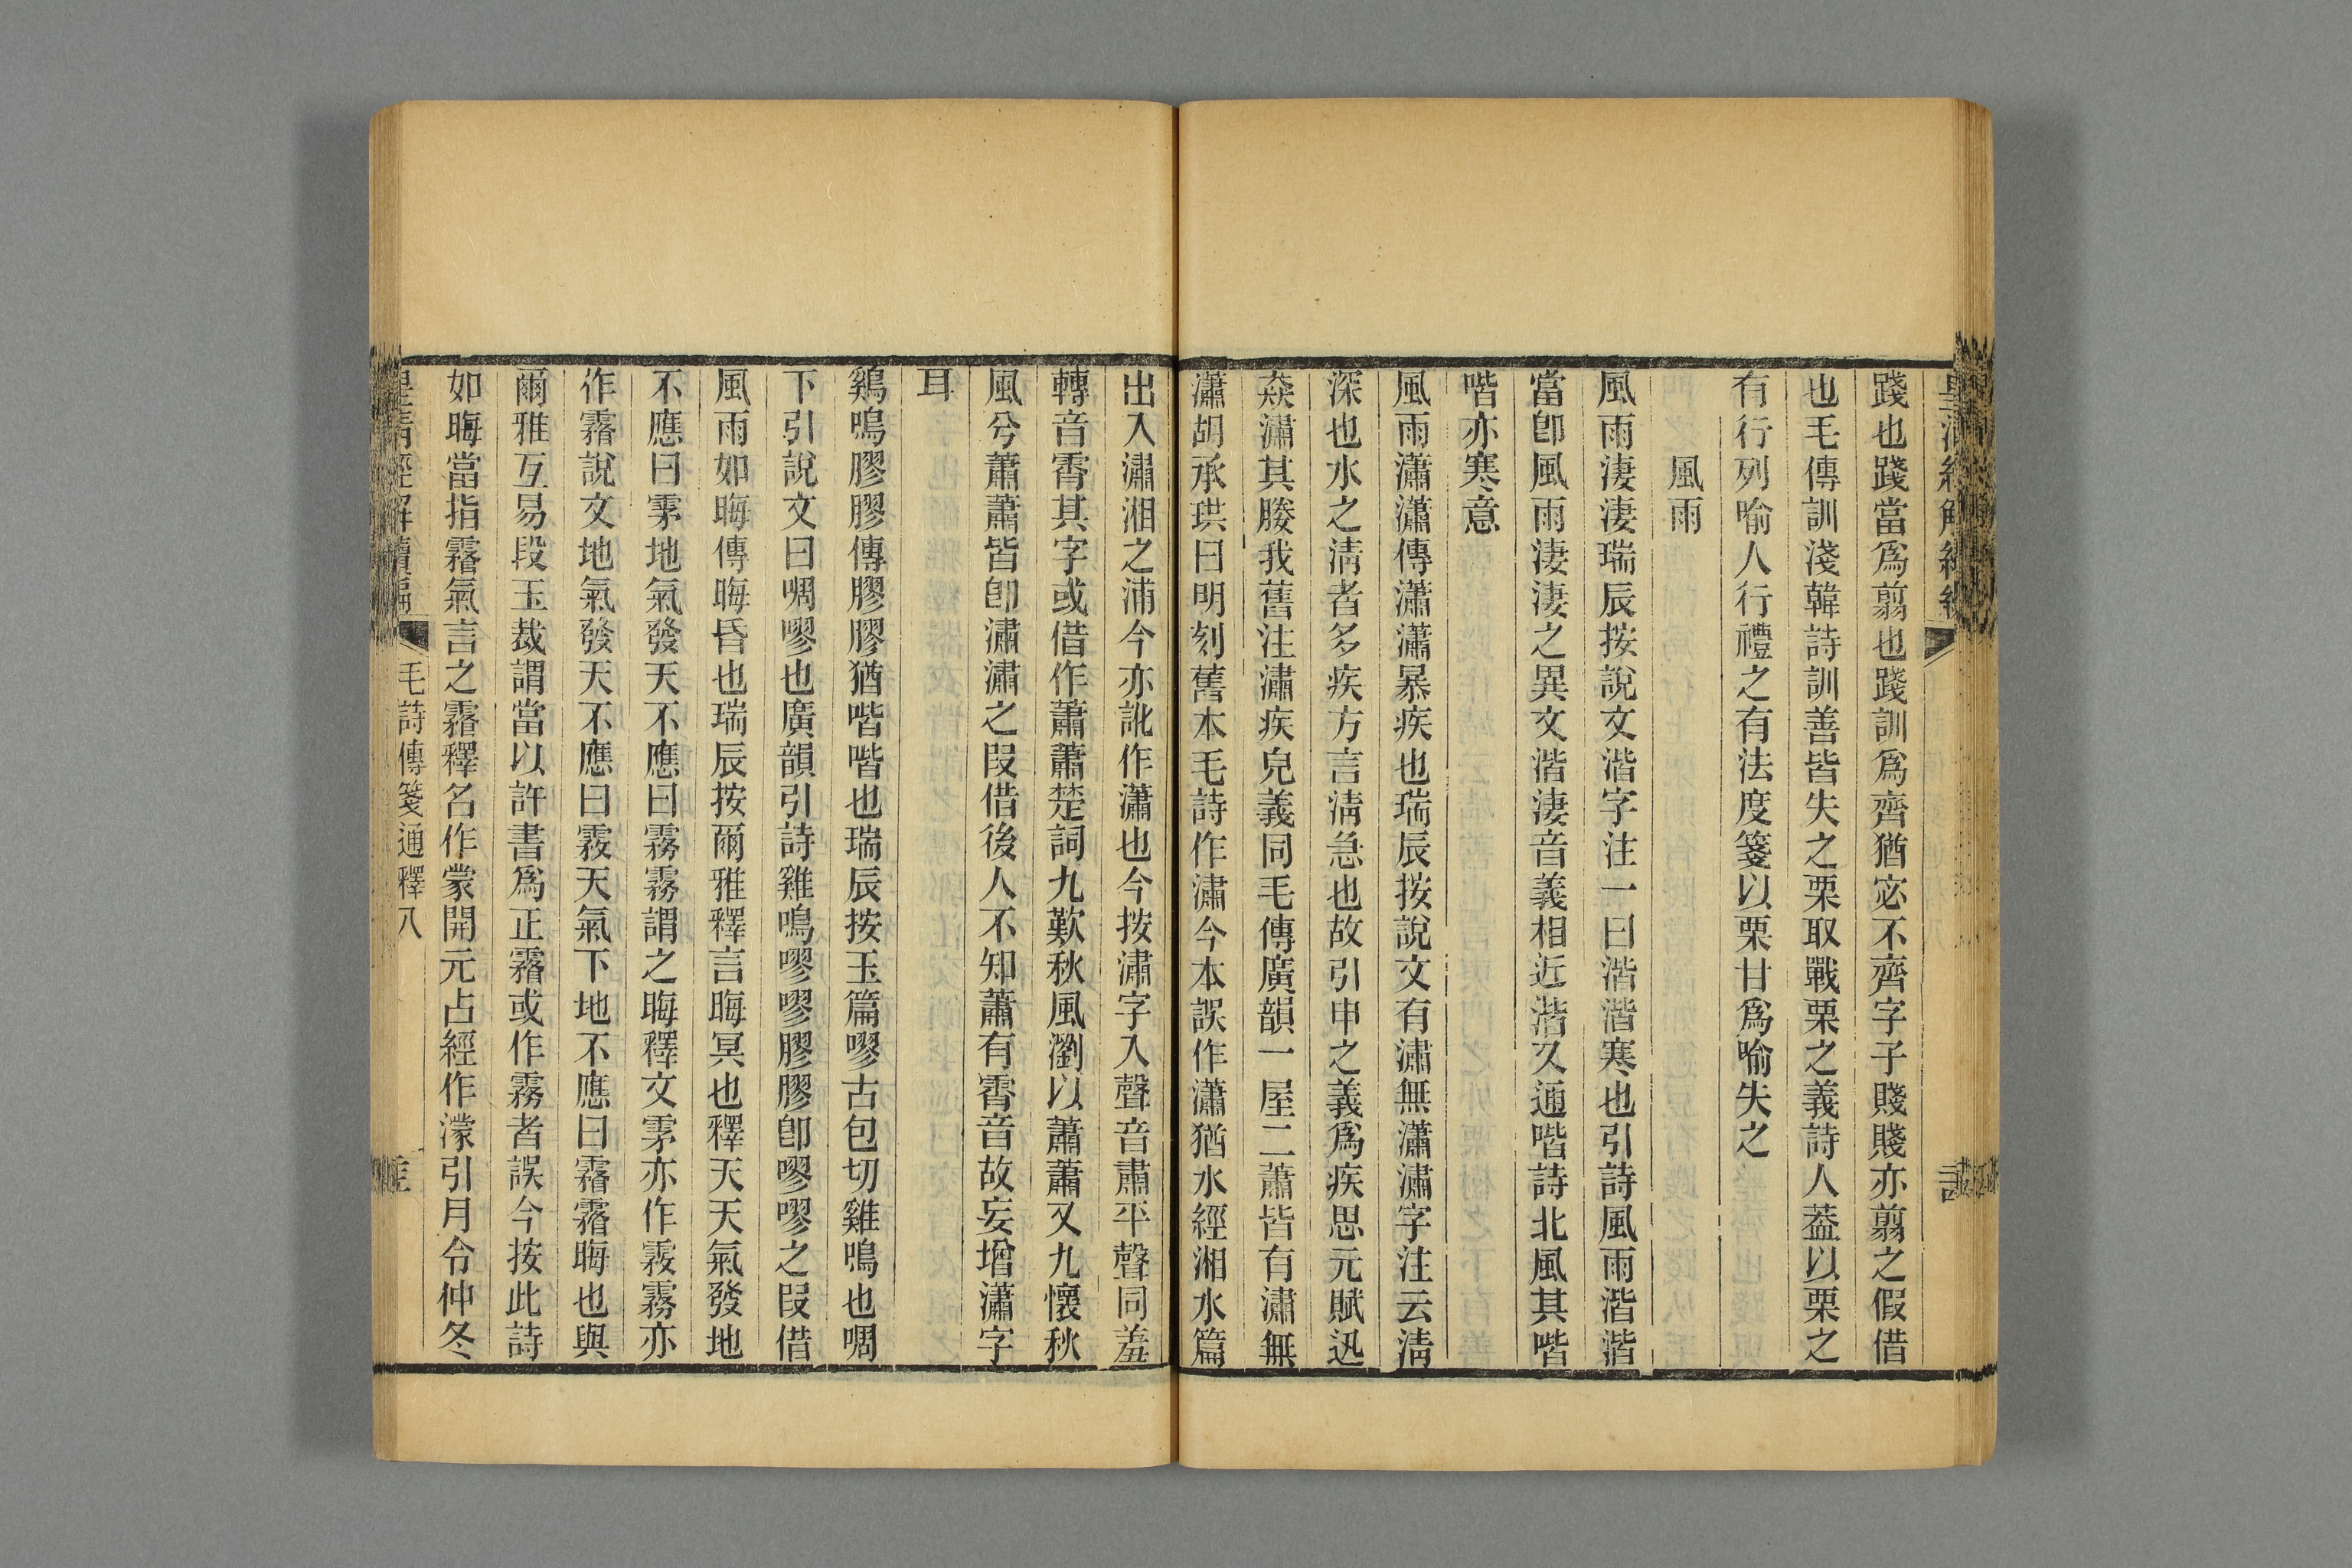 踐也踐當爲翦也踐訓爲齊猶宓不齊字子賤賤亦翦之假借
也毛傳訓淺韓詩訓善皆失之栗取戰栗之義詩人葢以栗之
有行列喻人行禮之有法度箋以栗甘爲喻失之
風雨
風雨淒淒瑞辰按說文湝字注一曰湝湝寒也引詩風雨湝湝
當卽風雨淒淒之異文湝淒音義相近湝又通喈詩北風其喈
喈亦寒意
風雨瀟瀟傳瀟瀟暴疾也瑞辰按說文有潚無瀟潚字注云淸
深也水之淸者多疾方言淸急也故引申之義爲疾思元賦迅
猋潚其媵我舊注潚疾皃義同毛傳廣韻一屋二蕭皆有潚無
瀟胡承珙曰明刻舊本毛詩作潚今本誤作瀟猶水經湘水篇
出入潚湘之浦今亦訛作瀟也今按潚字入聲音肅平聲同羞
轉音霄其字或借作蕭蕭楚詞九歎秋風瀏以蕭蕭又九懷秋
風兮蕭蕭皆卽潚潚之叚借後人不知蕭有霄音故妄增瀟字
耳
鷄鳴膠膠傳膠膠猶喈喈也瑞辰按玉篇嘐古包切雞鳴也啁
下引說文曰啁嘐也廣韻引詩雞鳴嘐嘐膠膠卽嘐嘐之叚借
風雨如晦傳晦昏也瑞辰按爾雅釋言晦冥也釋天天氣發地
不應曰雺地氣發天不應曰霧霧謂之晦釋文雺亦作霚霧亦
作霿說文地氣發天不應曰霚天氣下地不應曰霿霿晦也與
爾雅互易段玉裁謂當以許書爲正霿或作霧者誤今按此詩
如晦當指霿氣言之霿釋名作蒙開元占經作濛引月令仲冬
皇淸經解續編
毛詩傳箋通釋八